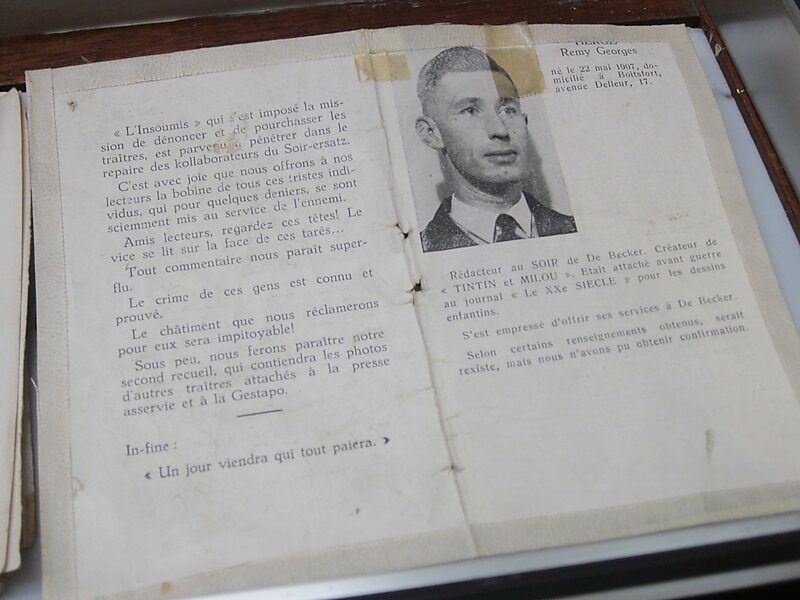 « L'Insoumis » qui s'est imposé la mis-
sion de dénoncer et de pourchasser les
traîtres, est parvenu à pénétrer dans le
repaire des kollaborateurs du Soir-ersatz.
C'est avec joie que nous offrons à nos
lecteurs la bobine de tous ces tristes indi-
vidus, qui pour quelques deniers, se sont
sciemment mis au service de l'ennemi.
Amis lecteurs, regardez ces têtes! Le
vice se lit sur la face de ces tarés...
Tout commentaire nous paraît super-
flu.
Le crime de ces gens est connu et
prouvé.
Le châtiment que nous réclamerons
pour eux sera impitoyable!
Sous peu, nous ferons paraître notre
second recueil, qui contiendra les photos
d'autres traîtres attachés à la presse
asservie et à la Gestapo.
In-fine :
« Un jour viendra qui tout paiera. »
HERGE
Remy Georges
né le 22 mai 1907, do-
micilié à Boitsfort,
avenue Delleur, 17.
Rédacteur au SOIR de De Becker. Créateur de
« TINTIN et MILOU ». Etait attaché avant guerre
au journal « Le XXe SIECLE » pour les dessins
enfantins.
S'est empressé d'offrir ses services à De Becker.
Selon certains renseignements obtenus, serait
rexiste, mais nous n'avons pu obtenir confirmation.